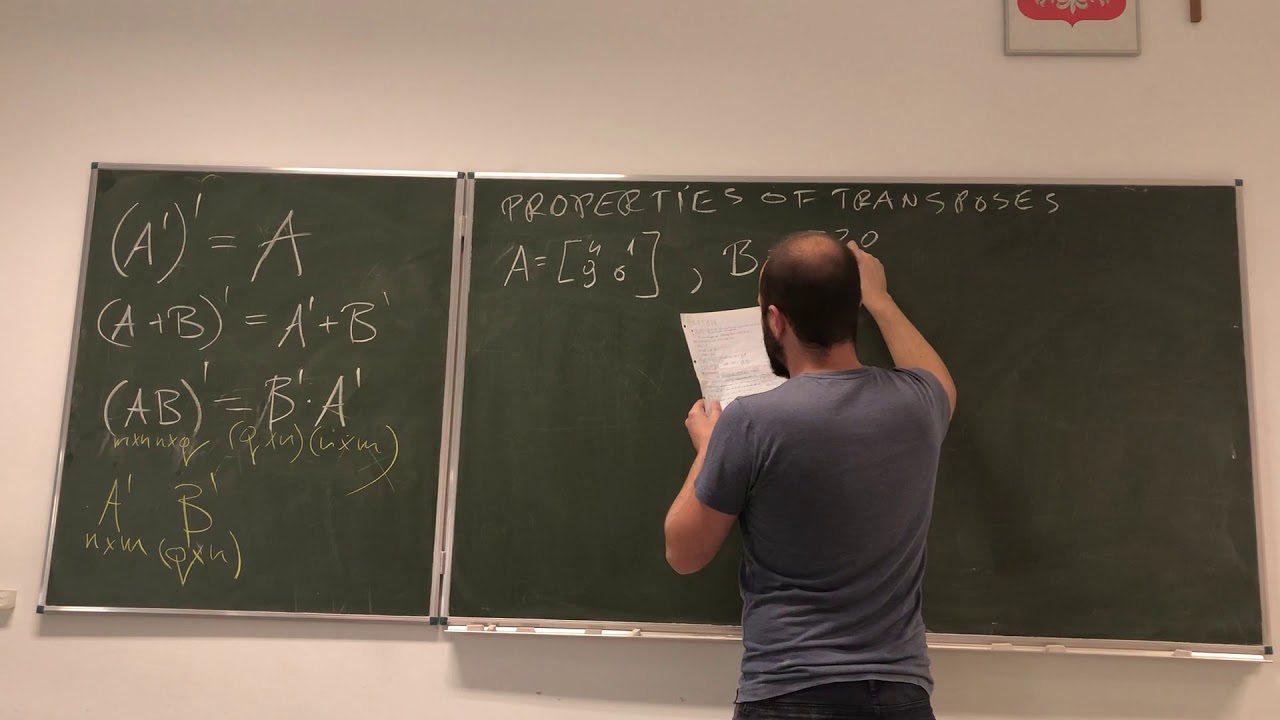 (A')' = A
(A+B)' = A'+B'
(AB)' = B'·A'
m×n n×q (q×n)(n×m)
A' B'
n×m (q×n)
PROPERTIES OF TRANSPOSES
A = [4 1
9 0] , B
20